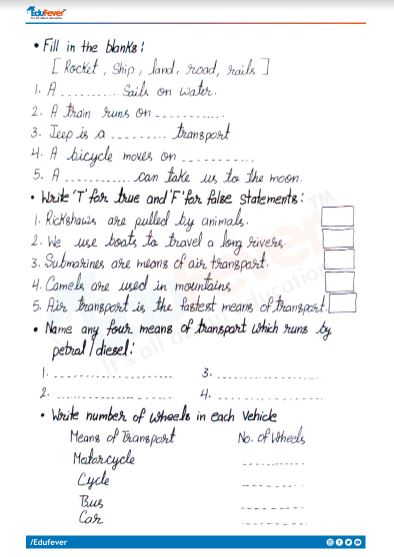 EduFever
It's all about education
• Fill in the blanks:
[ Rocket, Ship, land, road, rails ]
1. A ........... Sails on water.
2. A train runs on ............
3. Jeep is a ......... transport
4. A bicycle moves on ............
5. A ............ can take us to the moon.
• Write 'T' for true and 'F' for false statements:
1. Rickshaws are pulled by animals.
2. We use boats to travel a long rivers.
3. Submarines are means of air transport.
4. Camels are used in mountains
5. Air transport is the fastest means of transport.
• Name any four means of transport which runs by
petral/diesel:
1. ...................... 3. ......................
2. ...................... 4. ......................
• Write number of wheels in each Vehicle
Means of Transport No. of Wheels
Motorcycle ............
Cycle ............
Bus ............
Car ............
/Edufever